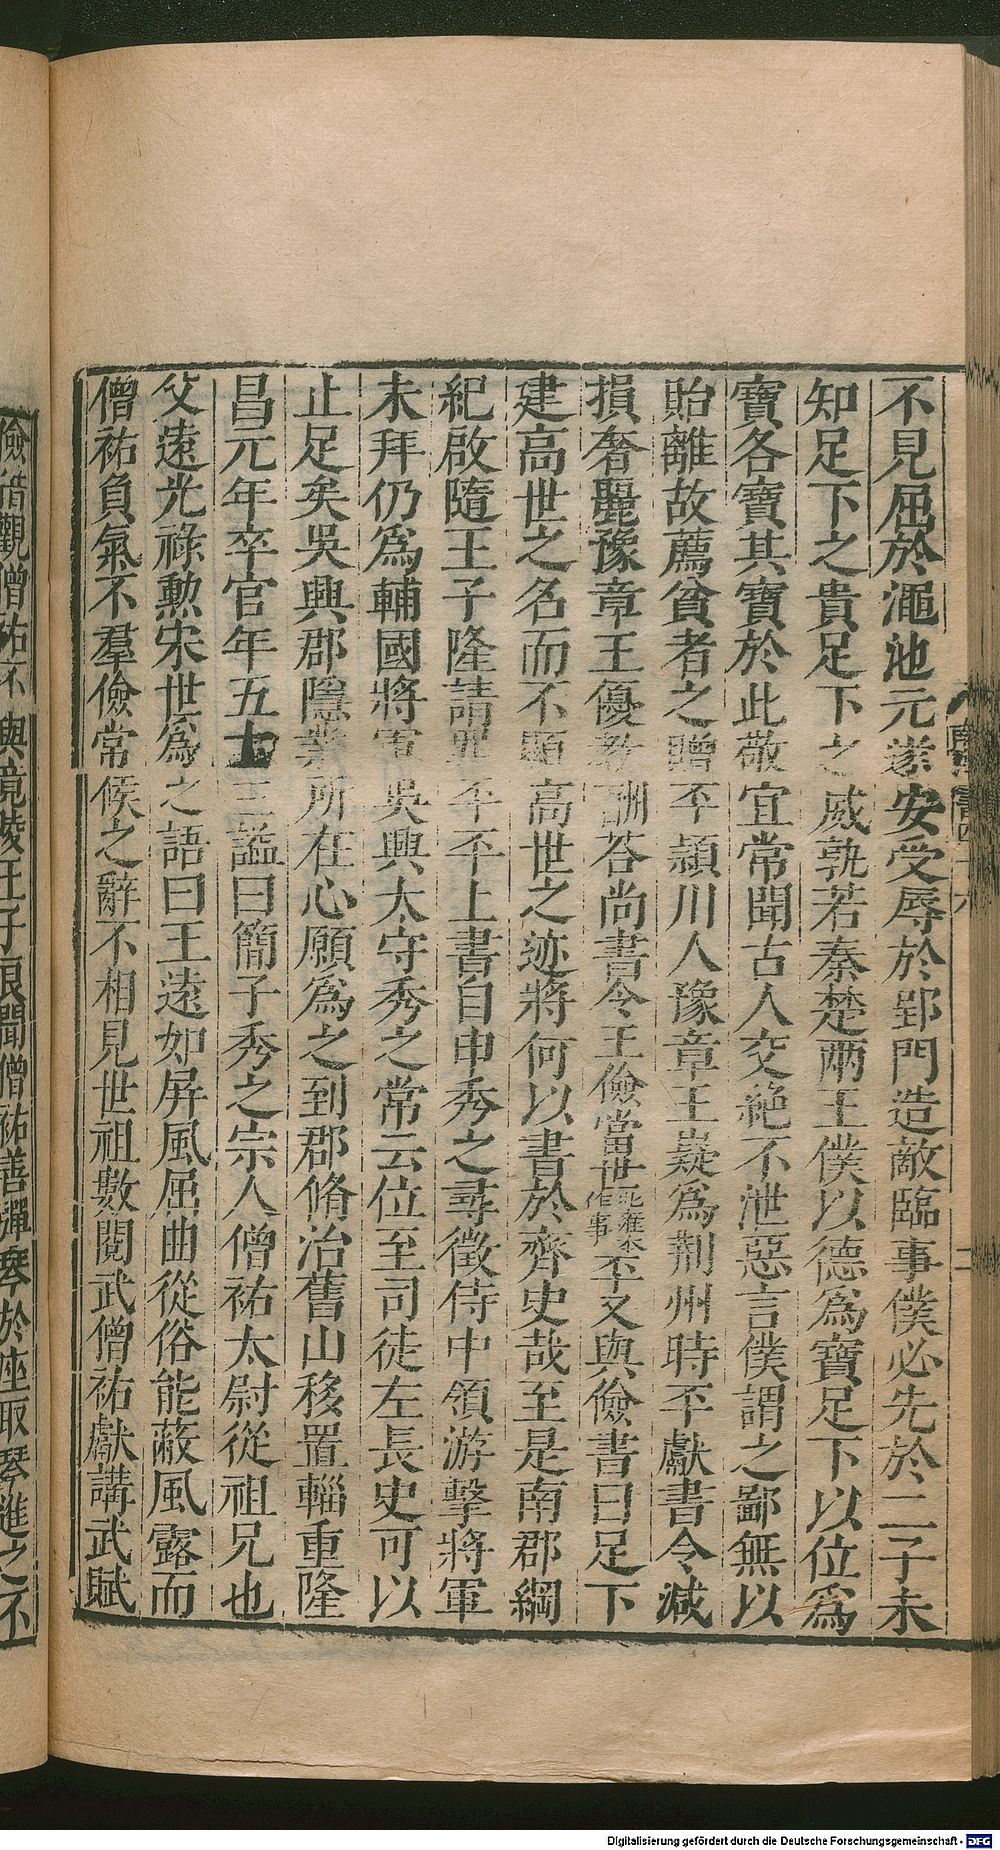 不見屈於澠池元崇安受辱於郢門造敵臨事僕必先於二子未
知足下之貴足下之威孰若秦楚兩王僕以德爲寶足下以位爲
寶各寶其寶於此敬宜常聞古人交絶不泄惡言僕謂之鄙無以
貽離故薦貧者之贈平潁川人豫章王嶷爲荆州時平獻書令減
損奢麗豫章王優教酬荅尚書令王儉當世北雍本作事平又與儉書曰足下
建高世之名而不顯高世之迹將何以書於齊史哉至是南郡綱
紀啟隨王子隆請罪平平上書自申秀之尋徵侍中領游擊將軍
未拜仍爲輔國將軍吳興太守秀之常云位至司徒左長史可以
止足矣吳興郡隱業所在心願爲之到郡脩治舊山移置輜重隆
昌元年卒官年五十三諡曰簡子秀之宗人僧祐太尉從祖兄也
父遠光祿勲宋世爲之語曰王遠如屏風屈曲從俗能蔽風露而
僧祐負氣不羣儉常候之辭不相見世祖數閱武僧祐獻講武賦
儉借觀僧祐不與竟陵王子良聞僧祐善彈琴於座取琴進之不
Digitalisierung gefördert durch die Deutsche Forschungsgemeinschaft - DFG